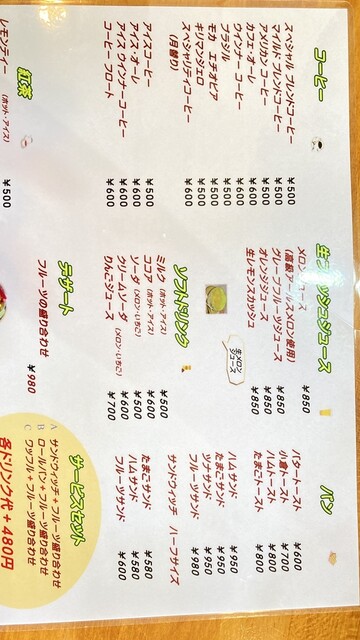 コーヒー
スペシャル ブレンドコーヒー ¥500
マイルド ブレンドコーヒー ¥500
アメリカンコーヒー ¥500
カフェ・オーレ ¥600
ウィンナーコーヒー ¥600
ブラジル ¥500
モカ エチオピア ¥500
キリマンジェロ ¥500
スペシャルティコーヒー ¥600
(月替り)
アイスコーヒー ¥500
アイス・オーレ ¥600
アイス ウインナーコーヒー ¥600
コーヒー フロート ¥600
紅茶
レモンティー (ホット・アイス) ¥500
生フレッシュジュース
メロンジュース ¥850
(高級アールスメロン使用)
グレープフルーツジュース ¥850
オレンジジュース ¥850
生レモンスカッシュ ¥850
生メロン
ジュース
ソフトドリンク
ミルク (ホット・アイス) ¥500
ココア (ホット・アイス) ¥600
ソーダ (メロン・いちご) ¥500
クリームソーダ (メロン・いちご) ¥600
りんごジュース ¥700
デザート
フルーツの盛り合わせ ¥980
パン
バタートースト ¥600
小倉トースト ¥700
ハムトースト ¥800
たまごトースト ¥800
ハムサンド ¥950
たまごサンド ¥950
ツナサンド ¥950
フルーツサンド ¥980
サンドウィッチ ハーフサイズ
たまごサンド ¥580
ハムサンド ¥580
フルーツサンド ¥600
サービスセット
A サンドウィッチ+フルーツ盛り合わせ
B ロールパン+フルーツ盛り合わせ
C ワッフル+フルーツ盛り合わせ
各ドリンク代+480円